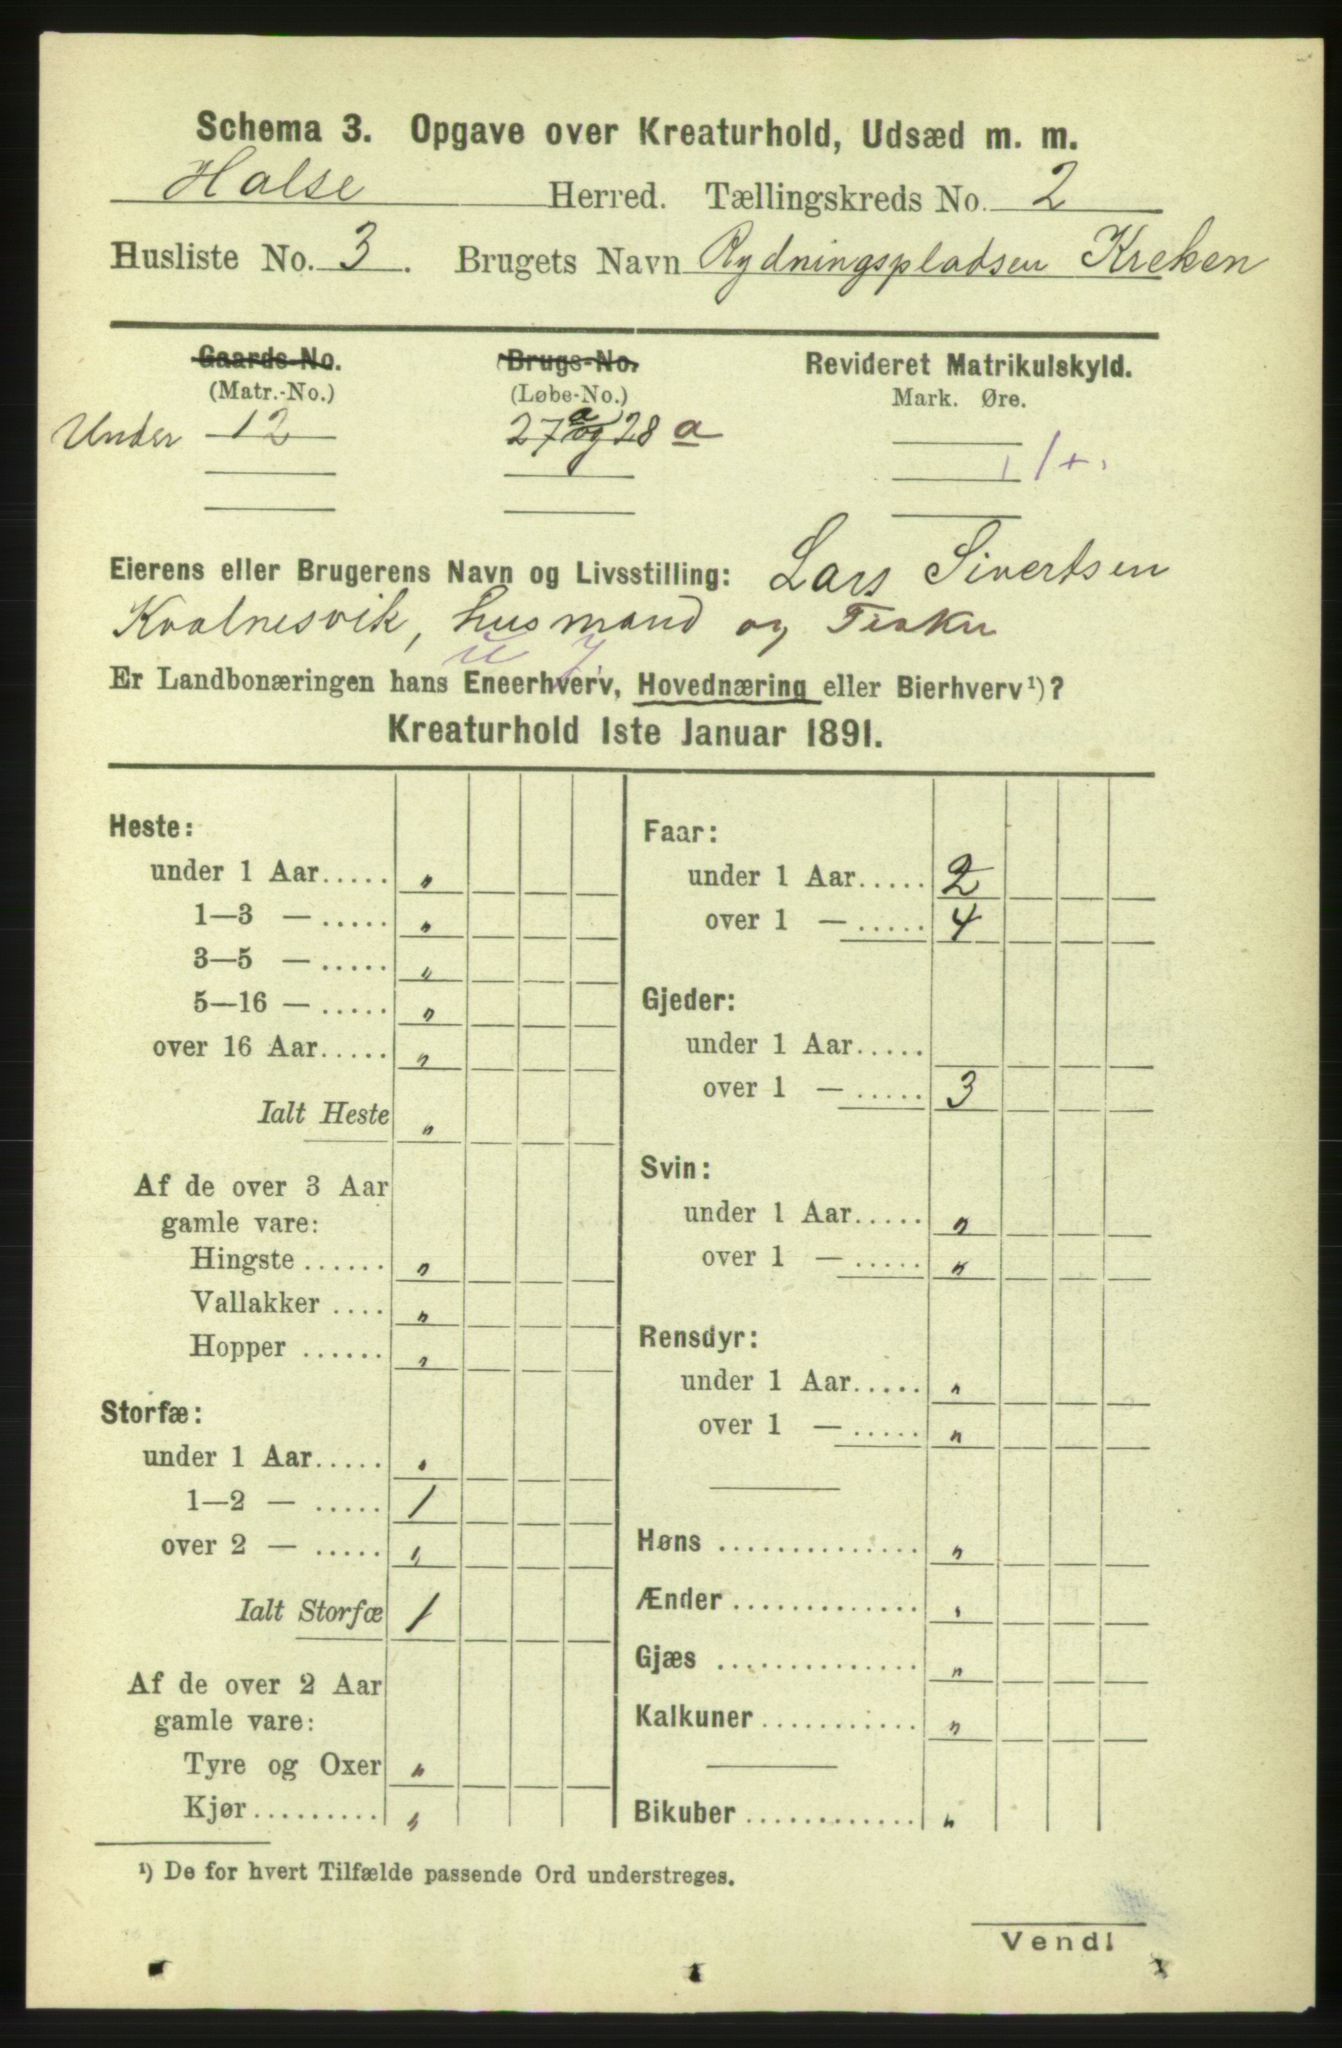 Schema 3. Opgave over Kreaturhold, Udsæd m. m.
Halse Herred. Tællingskreds No. 2
Husliste No. 3. Brugets Navn Rydningspladsen Kreken
Gaards-No. Brugs-No. Revideret Matrikulskyld.
(Matr.-No.) (Løbe-No.) Mark. Øre.
Under 12 27 a og 28 a
Eierens eller Brugerens Navn og Livsstilling: Lars Sivertsen
Kvalnesvik, husmand og Fisker
Er Landbonæringen hans Eneerhverv, Hovednæring eller Bierhverv¹)?
Kreaturhold 1ste Januar 1891.
Heste:
under 1 Aar..... "
1—3 — ..... "
3—5 — ..... "
5—16 — ..... "
over 16 Aar..... "
Ialt Heste "
Af de over 3 Aar
gamle vare:
Hingste ...... "
Vallakker .... "
Hopper ...... "
Storfæ:
under 1 Aar..... "
1—2 — ..... 1
over 2 — ..... "
Ialt Storfæ 1
Af de over 2 Aar
gamle vare:
Tyre og Oxer "
Kjør......... "
Faar:
under 1 Aar..... 2
over 1 — ..... 4
Gjeder:
under 1 Aar.....
over 1 — ..... 3
Svin:
under 1 Aar..... "
over 1 — ..... "
Rensdyr:
under 1 Aar..... "
over 1 — ..... "
Høns .............. "
Ænder ............. "
Gjæs .............. "
Kalkuner ........... "
Bikuber ............ "
¹) De for hvert Tilfælde passende Ord understreges.
Vend!